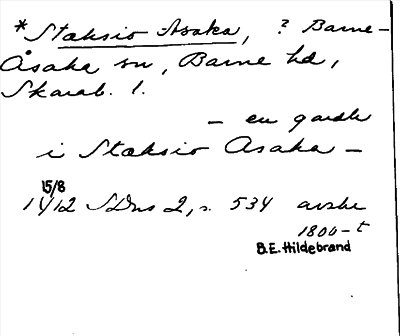 *Stæksio Asaka, ? Barne-
Åsaka sn, Barne hd,
Skarab. l.
- en gardh
i Stæksio Asaka -
15/8
1412 SDns 2, s. 534 avskr
1800-t
B.E. Hildebrand